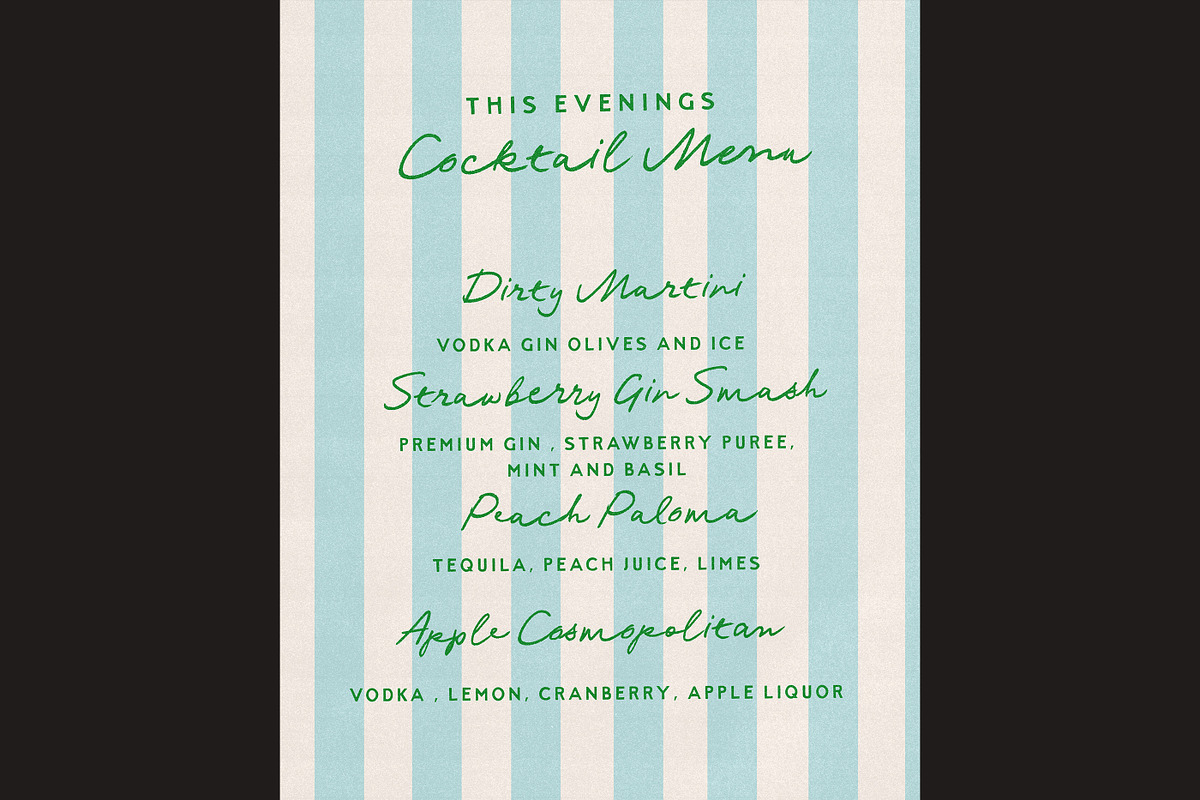 THIS EVENINGS
Cocktail Menu
Dirty Martini
VODKA GIN OLIVES AND ICE
Strawberry Gin Smash
PREMIUM GIN , STRAWBERRY PUREE,
MINT AND BASIL
Peach Paloma
TEQUILA, PEACH JUICE, LIMES
Apple Cosmopolitan
VODKA , LEMON, CRANBERRY, APPLE LIQUOR